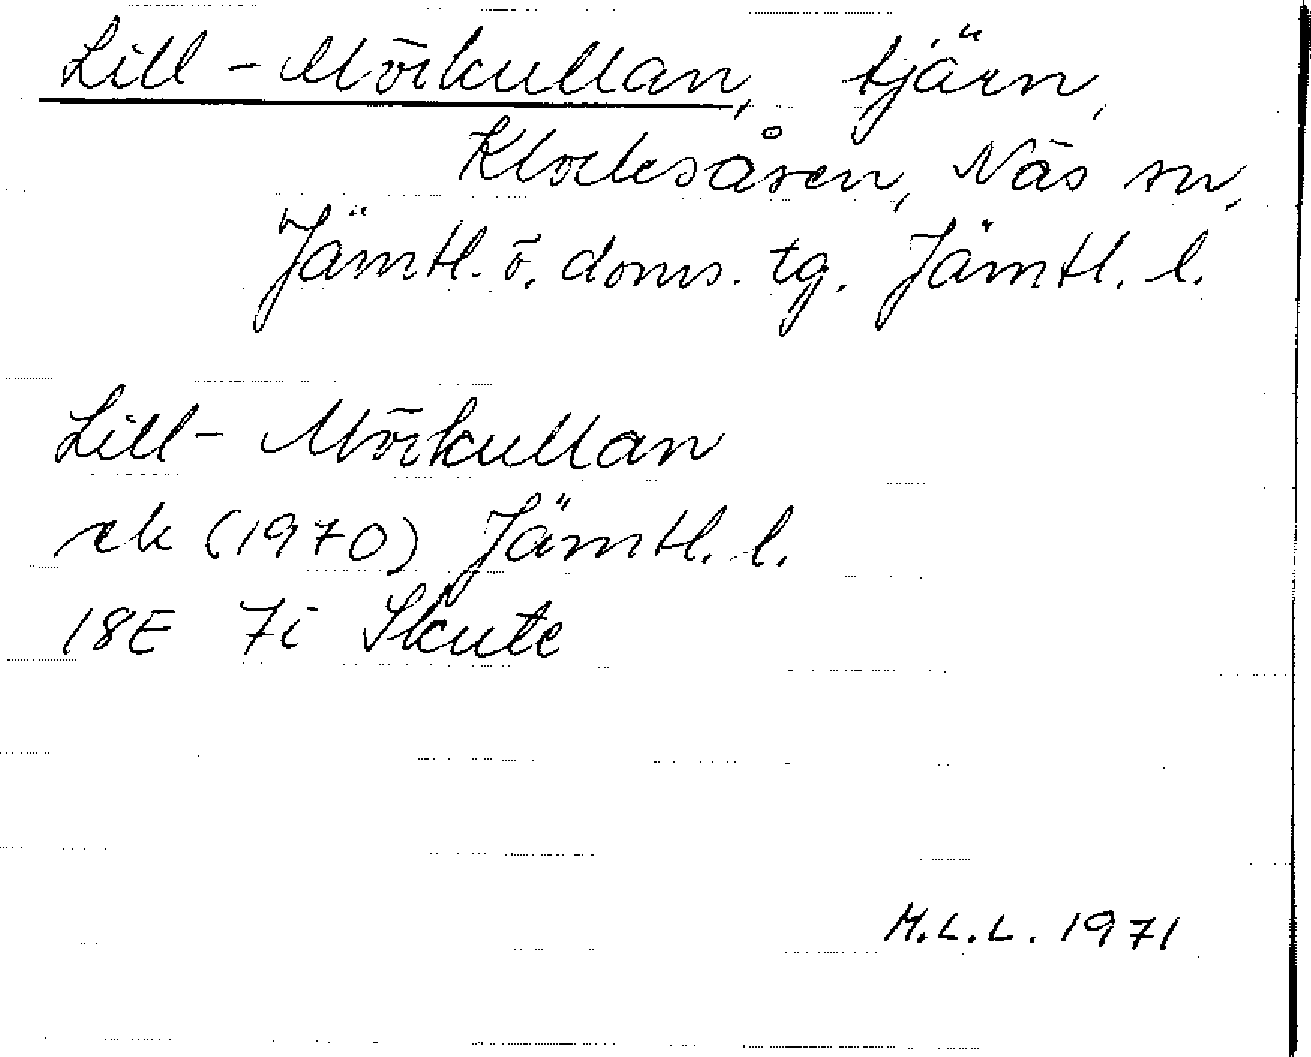 Lill-Mörkullan, tjärn,
Klocksåsen, Näs sn,
Jämtl. ö. doms. tg. Jämtl. l.
Lill-Mörkullan
ek (1970) Jämtl. l.
18E 7i Skute
M.L.L. 1971